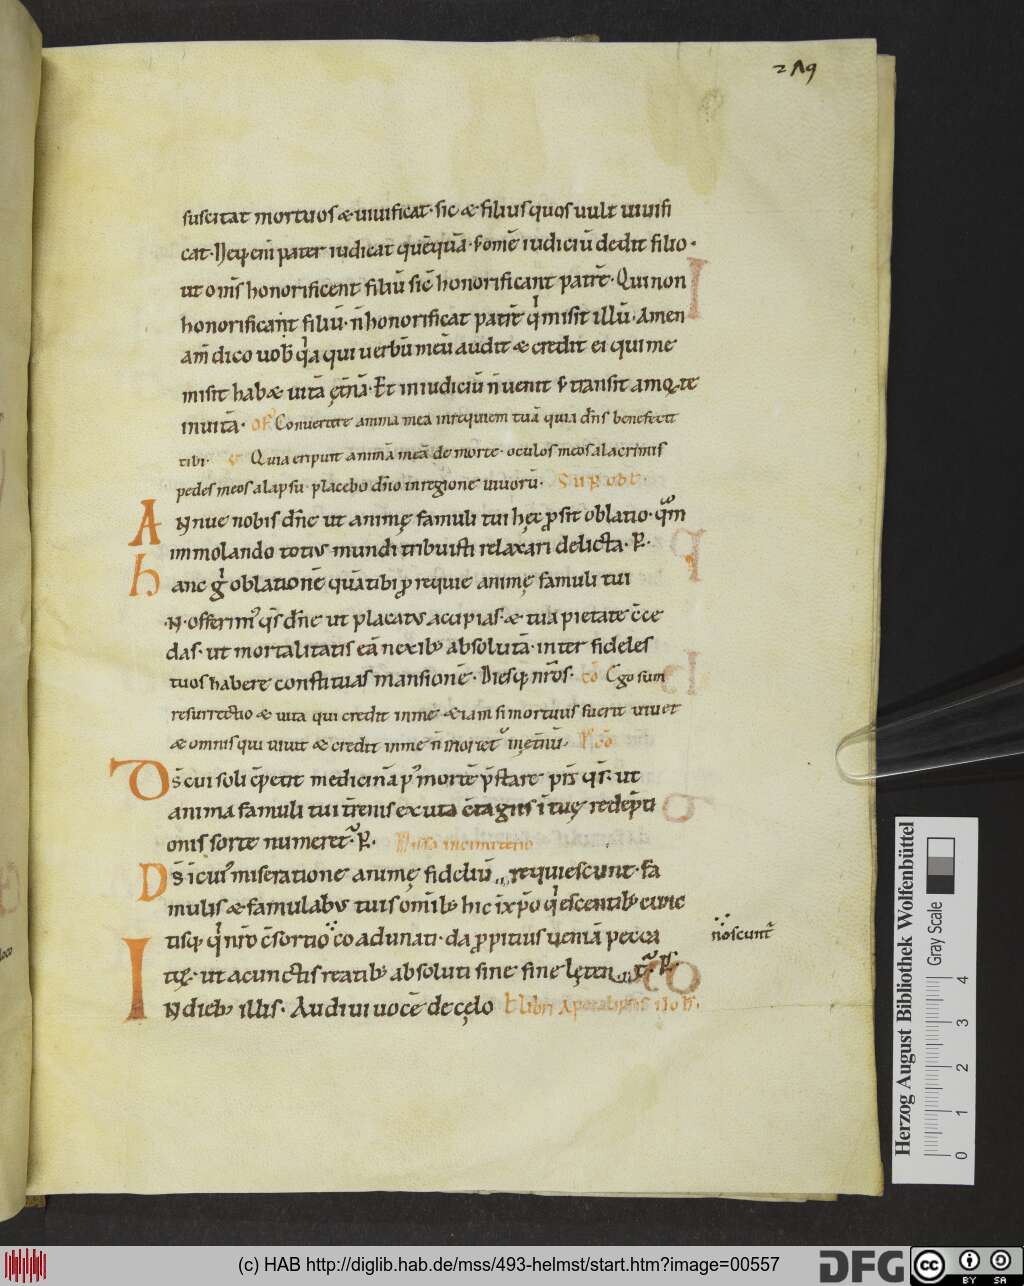 219
suscitat mortuos & uiuificat· sic & filius quos uult uiuifi
cat· Neq; eni᷒ pater iudicat quēquā· s; om̄e iudiciū dedit filio·
ut om̄s honorificent filiū sic̄ honorificant patrē· Qui non
honorificant filiū· n̄ honorificat patrē q̍ misit illū· Amen
am̄ dico uob̄ q̍a qui uerbū meū audit & credit ei qui me
misit hab& uitā ę̄tnā· Et in iudiciū n̄ uenit s; transit a morte
in uitā· Of̄ Conuertere anima mea in requiem tuā quia dn̄s benefecit
tibi· Quia eripuit animā meā de morte· oculos meos a lacrimis
pedes meos a lapsu· placebo dn̄o in regione uiuorū· Sup̄ obl̄·
Annue nobis dn̄e ut animę famuli tui hęc p̱sit oblatio· quā
immolando totius mundi tribuisti relaxari delicta· P̱·
hanc g̍ oblationē quā tibi p̱ requie animę famuli tui
·N· offerim᷒ q̄s dn̄e ut placatus accipias· & tua pietate c̄ce
das· ut mortalitatis eā nexib; absolutā· inter fideles
tuos habere constituas mansionē· Diesq; nr̄os· Cō Ego sum
resurrectio & uita qui credit in me &iam si mortuus fuerit uiuet
& omnis qui uiuit & credit in me n̄ moriet᷒ in ęt̄nū· P᷒ cō
Ds̄ cui soli c̄petit medicinā p᷒ mortē p̄stare p̄s̄ q̄s· ut
anima famuli tui t̄renis exuta c̄tagiis ī tuę redēpti
onis sorte numeret᷒· P̱· Missa in cimiterio
Ds̄ ī cui᷒ miseratione animę fideliū requiescunt· fa
mulis & famulabus tuis om̄ib; hic ī xp̄o q̍escentib; 
noscunt᷒
tisq; q̍ nr̄o c̄sortio coadunati· da p̱pitius ueniā pecca
 ut a cunctis reatib; absoluti sine fine lęten
In dieb; illis· Audiui uocē de cęlo t̄ libri Apocalipsis
Herzog August Bibliothek Wolfenbüttel
Gray Scale
0 1 2 3 4
(c) HAB http://diglib.hab.de/mss/493-helmst/start.htm?image=00557
DFG
cc BY SA